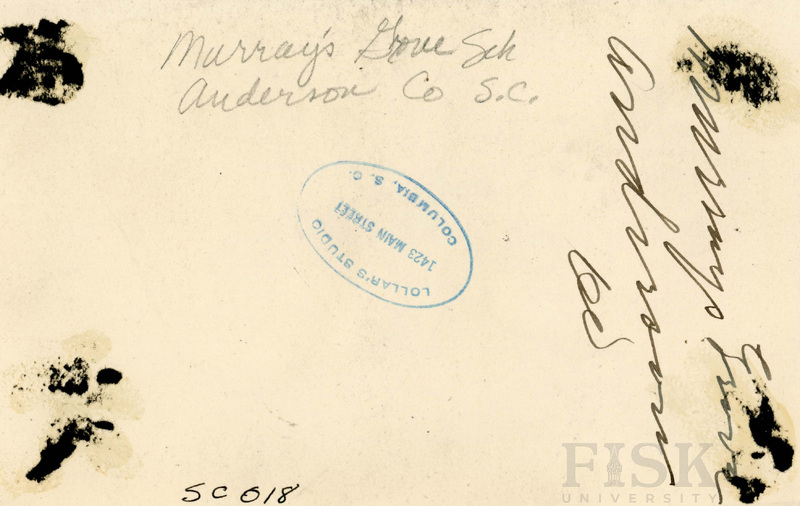 Murray's Grove Sch
Anderson Co S.C.
LOLLAR'S STUDIO
1423 MAIN STREET
COLUMBIA, S. C.
Murray Grove
Anderson
Co
SC 018
FISK
UNIVERSITY